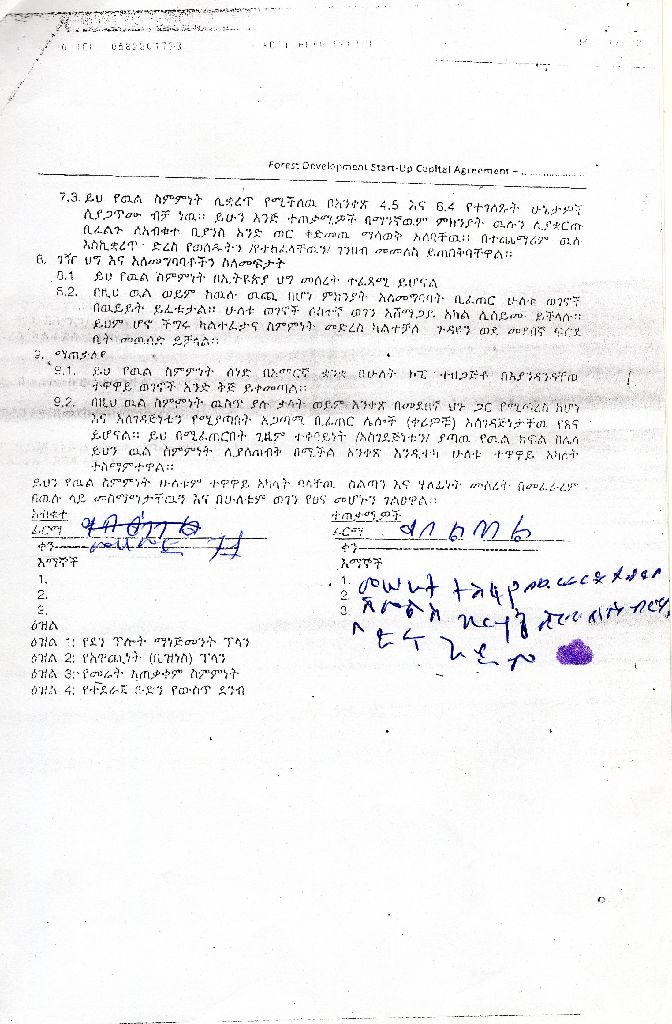 TEL 0582201793
Forest Development Start-Up Capital Agreement – ....................
7.3. ይህ የዉል ስምምነት ሊቋረጥ የሚችለዉ በአንቀጽ 4.5 እና 6.4 የተገለጹት ሁኔታዎች
ሲያጋጥሙ ብቻ ነዉ። ይሁን እንጅ ተጠቃሚዎች በማንኛዉም ምክንያት ዉሉን ሊያቋርጡ
ቢፈልጉ ለአብቁተ ቢያንስ አንድ ወር ቀድመዉ ማሳወቅ አለባቸዉ። በተጨማሪም ዉሉ
እስኪቋረጥ ድረስ የወሰዱትን /የተከፈላቸዉን/ ገንዘብ መመለስ ይጠበቅባቸዋል።
8. ገዥ ህግ እና አለመግባባቶችን ስለመፍታት
8.1 ይህ የዉል ስምምነት በኢትዮጵያ ህግ መሰረት ተፈጻሚ ይሆናል
8.2. በዚህ ዉል ወይም ከዉሉ ዉጪ በሆነ ምክንያት አለመግባባት ቢፈጠር ሁለቱ ወገኖች
በዉይይት ይፈቱታል። ሁለቱ ወገኖች ሶስተኛ ወገን አሸማጋይ አካል ሊሰይሙ ይችላሉ።
ይህም ሆኖ ችግሩ ካልተፈታና ስምምነት መድረስ ካልተቻለ ጉዳዩን ወደ መደበኛ ፍርድ
ቤት መዉሰድ ይቻላል።
9. ማጠቃለያ
9.1. ይህ የዉል ስምምነት ሰነድ በአማርኛ ቋንቋ በሁለት ኮፒ ተዘጋጅቶ በእያንዳንዳቸዉ
ተዋዋይ ወገኖች አንድ ቅጅ ይቀመጣል።
9.2. በዚህ ዉል ስምምነት ዉስጥ ያሉ ቃላት ወይም አንቀጽ በመደበኛ ህጉ ጋር የሚጣረስ ከሆነ
እና አስገዳጅነቱን የሚያጣበት አጋጣሚ ቢፈጠር ሌሎች (ቀሪዎቹ) አስገዳጅነታቸዉ የፀና
ይሆናል። ይህ በሚፈጠርበት ጊዜም ተቀባይነት /አስገዳጅነቱን/ ያጣዉ የዉል ክፍል በሌላ
ይህን ዉል ስምምነት ሊያስጠብቅ በሚችል አንቀጽ እንዲተካ ሁለቱ ተዋዋይ አካላት
ተስማምተዋል።
ይህን የዉል ስምምነት ሁለቱም ተዋዋይ አካላት ባላቸዉ ስልጣን እና ሃላፊነት መሰረት በመፈራረም
በዉሉ ላይ መስማማታቸዉን እና በሁለቱም ወገን የፀና መሆኑን ገልፀዋል።
አብቁተ ተጠቃሚዎች
ፊርማ ፊርማ
ቀን ቀን
እማኞች እማኞች
1. 1.
2. 2.
3. 3.
ዕዝል
ዕዝል 1: የደን ጥሎት ማነጅመንት ፕላን
ዕዝል 2: የአዋጪነት (ቢዝነስ) ፕላን
ዕዝል 3: የመሬት አጠቃቀም ስምምነት
ዕዝል 4: የተደራጁ ቡድን የውስጥ ደንብ